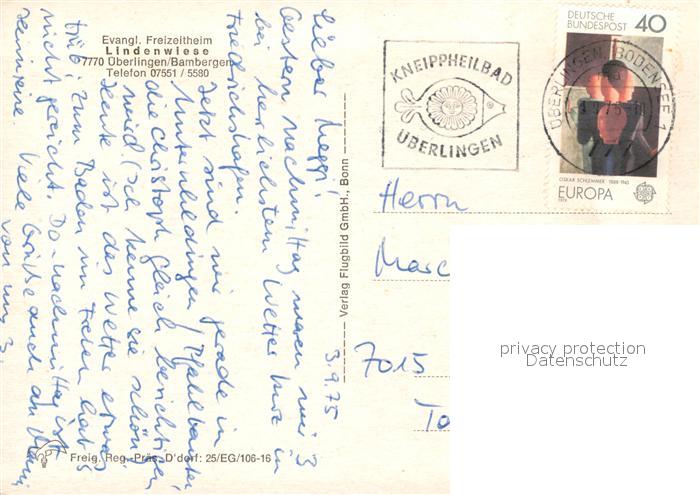 Evangl. Freizeitheim
Lindenwiese
7770 Überlingen/Bambergen
Telefon 07551 / 5580
3.9.75
Lieber Maggi!
Gestern nachmittag waren wir 3
bei herrlichstem Wetter kurz in
Friedrichshafen.
Jetzt sind wir gerade in
Unteruhldingen (Pfahlbauten
die Christoph gleich besichtigen
wird. (Ich kenne sie schon)
Heute ist das Wetter etwas
trüb. Zum Baden im Freien hat's
nicht gereicht. Do-nachmittag ist
Heimreise. Viele Grüße auch an Mami
von uns 3.
Freig. Reg.-Präs. D'dorf: 25/EG/106-16
Verlag Flugbild GmbH., Bonn
KNEIPPHEILBAD
ÜBERLINGEN
DEUTSCHE
BUNDESPOST 40
ÜBERLINGEN, BODENSEE 1
OSKAR SCHLEMMER 1888-1943
EUROPA
1975
Herrn
Marc
7015
privacy protection
Datenschutz